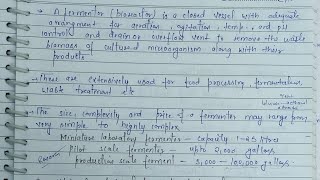 A fermentor (bioreactor) is a closed vessel with adequate
arrangement for aeration, agitation, temp., and pH
control and drain or overflow vent to remove the waste
biomass of cultured microorganism along with their
products
These are extensively used for food processing, fermentation,
waste treatment etc
The size, complexity and price of a fermenter may range from
very simple to highly complex
Miniature laboratory fermenter - capacity 1-20 litres
Pilot scale fermenters - upto 2,000 gallons
productive scale ferment - 5,000 - 100,000 gallons